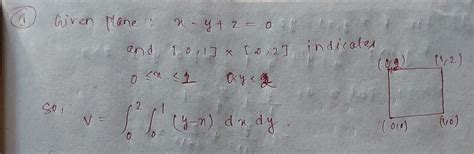 ① Given Plane : x - y + z = 0
and [0,1] x [0,2] indicates
0 ≤ x ≤ 1 0 ≤ y ≤ 2
(0,2) (1,2)
So, V = ∫₀² ∫₀¹ (y-x) dx dy.
(0,0) (1,0)